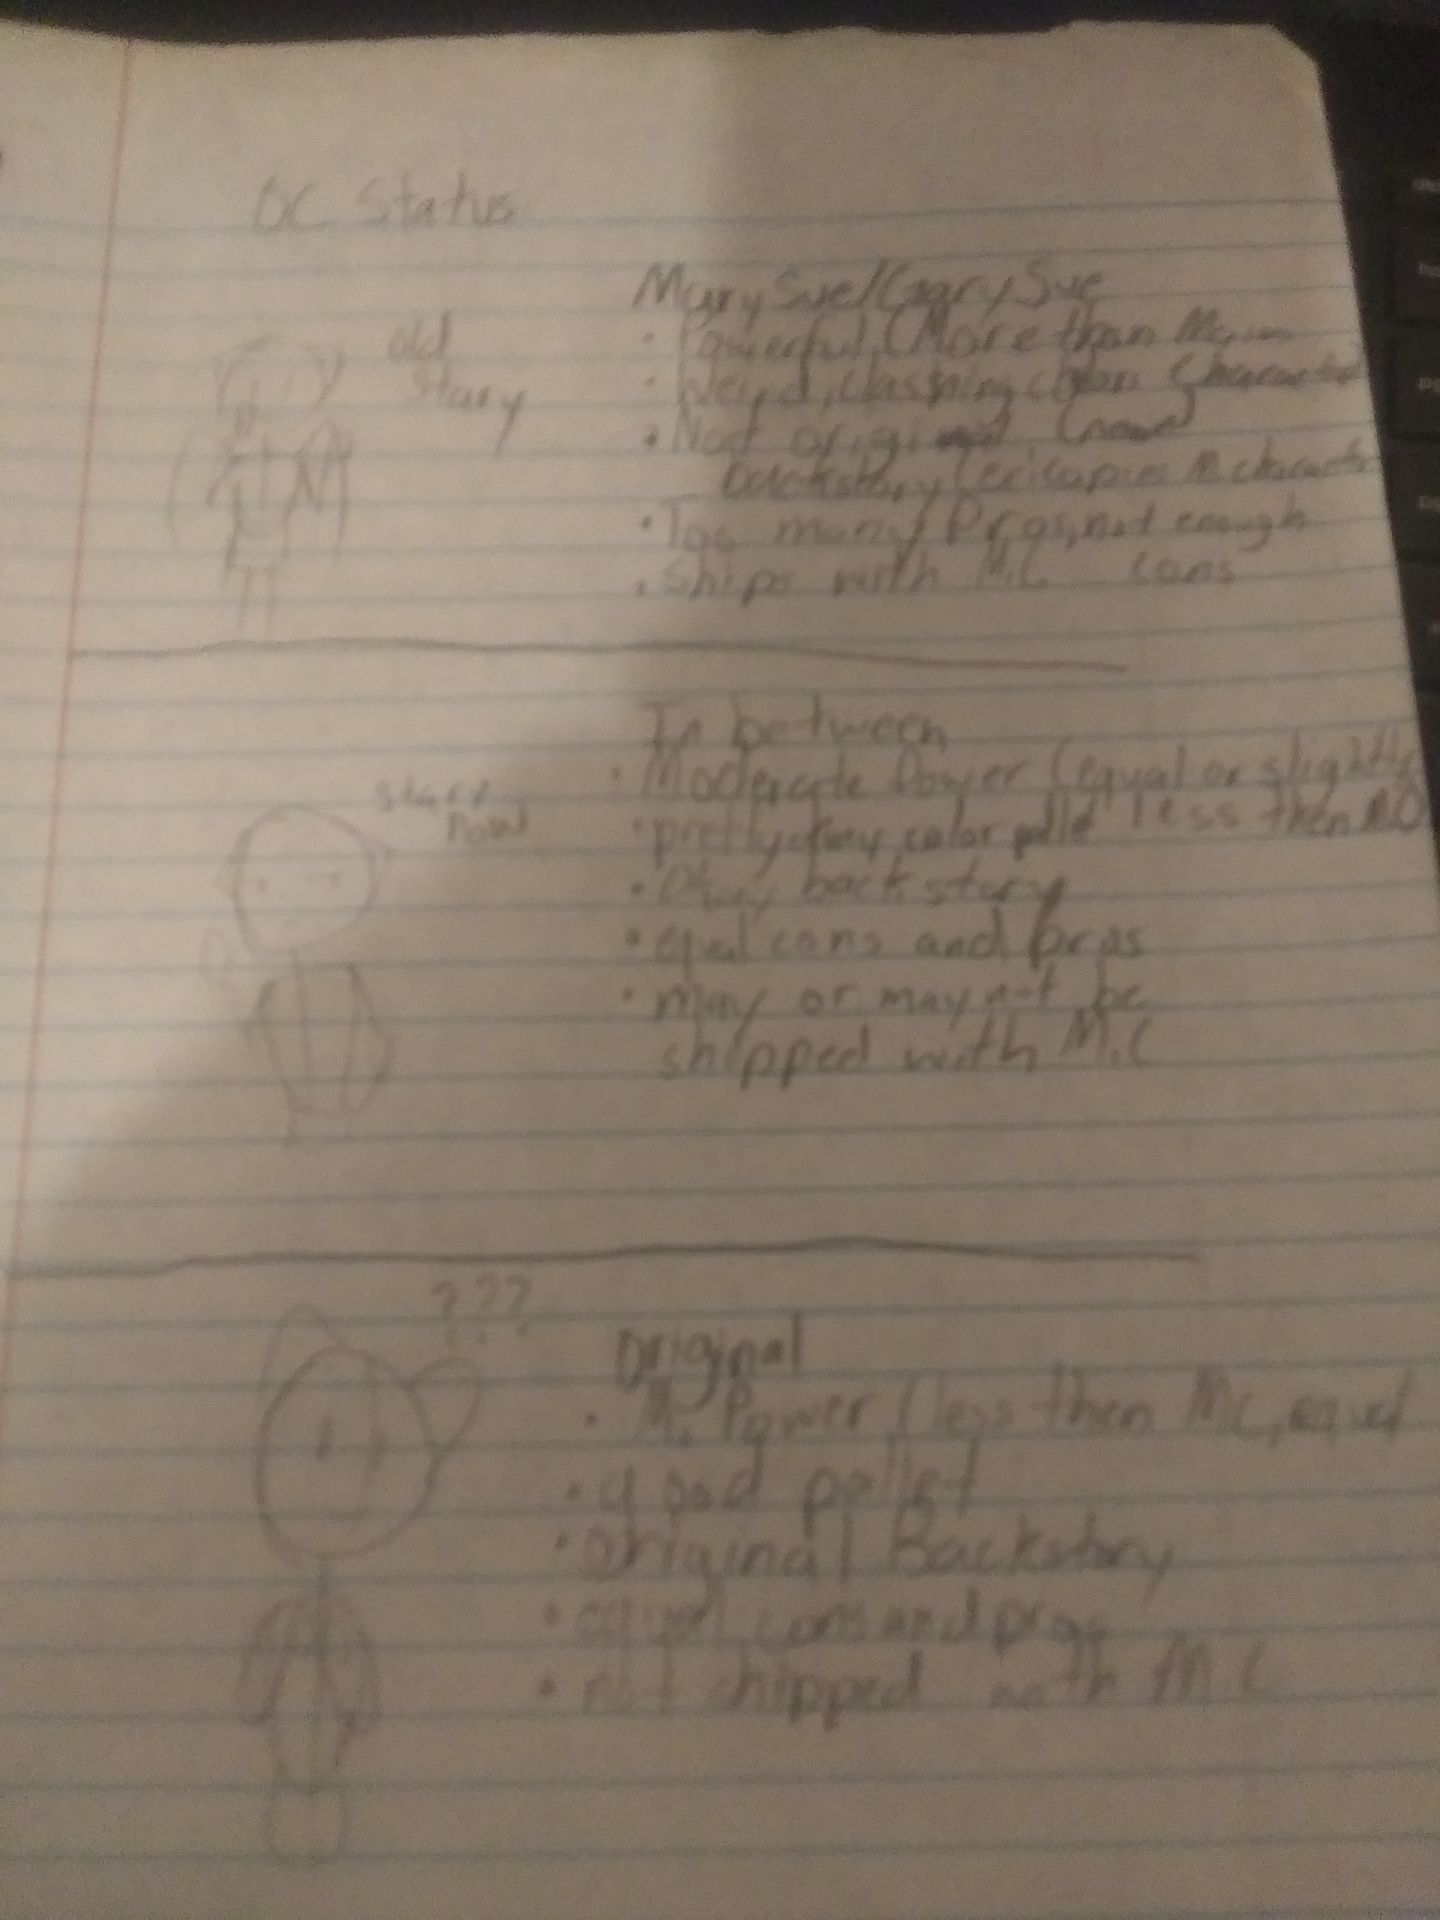 OC Status
old
stary
Mary Sue/Gary Sue
• Powerful, (More than Main
• Weird, clashing colors Character)
• Not original
backstory copies M. character
• Too many Pros, not enough
• Ships with M.C cons
stary
now
In between
• Moderate Power (equal or slightly
• pretty okay color pallet less then MC)
• Okay backstory
• equal cons and pros
• may or may not be
shipped with M.C
???
Original
• M. Power (less then MC, equal
• good pallet
• Original Backstory
• equal cons and pros
• not shipped with M.C